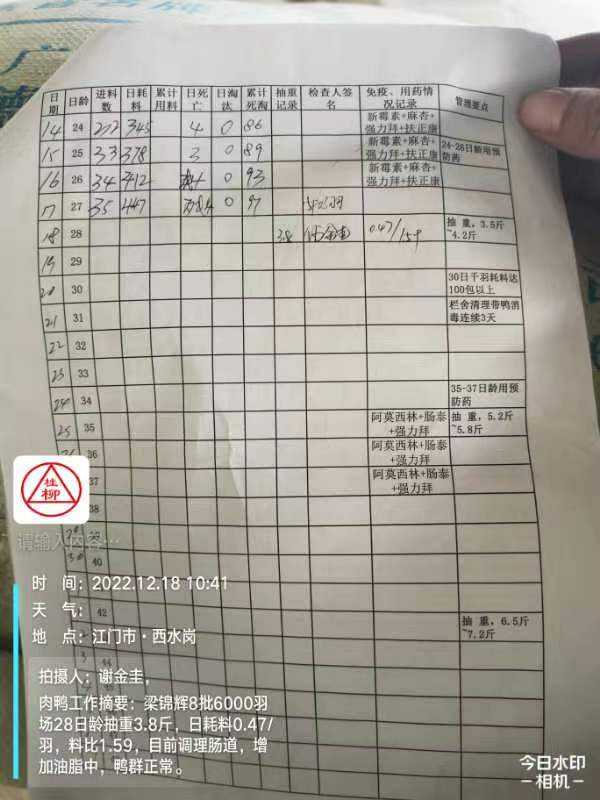 日期 日龄 进料数 日耗料 累计用料 日死亡 日淘汰 累计死淘 抽重记录 检查人签名 免疫、用药情况记录 管理要点
14 24 345 4 0 86 新霉素+麻杏+强力拜+扶正康
15 25 33 378 3 0 89 新霉素+麻杏+强力拜+扶正康 24-26日龄用预防药
16 26 34 412 0 93 新霉素+麻杏+强力拜+扶正康
17 27 35 447 0 97
18 28 3.8 谢金圭 0.47/159 抽重，3.5斤~4.2斤
19 29
20 30 30日千羽耗料达100包以上
21 31 栏舍清理带鸭消毒连续3天
22 32
23 33
24 34 35-37日龄用预防药
25 35 阿莫西林+肠泰+强力拜 抽重，5.2斤~5.8斤
36 阿莫西林+肠泰+强力拜
37 阿莫西林+肠泰+强力拜
30 40
42 抽重，6.5斤~7.2斤
桂柳
请输入内容…
时 间：2022.12.18 10:41
天 气：
地 点：江门市·西水岗
拍摄人：谢金圭，
肉鸭工作摘要：梁锦辉8批6000羽
场28日龄抽重3.8斤，日耗料0.47/
羽，料比1.59，目前调理肠道，增
加油脂中，鸭群正常。
今日水印
-相机-